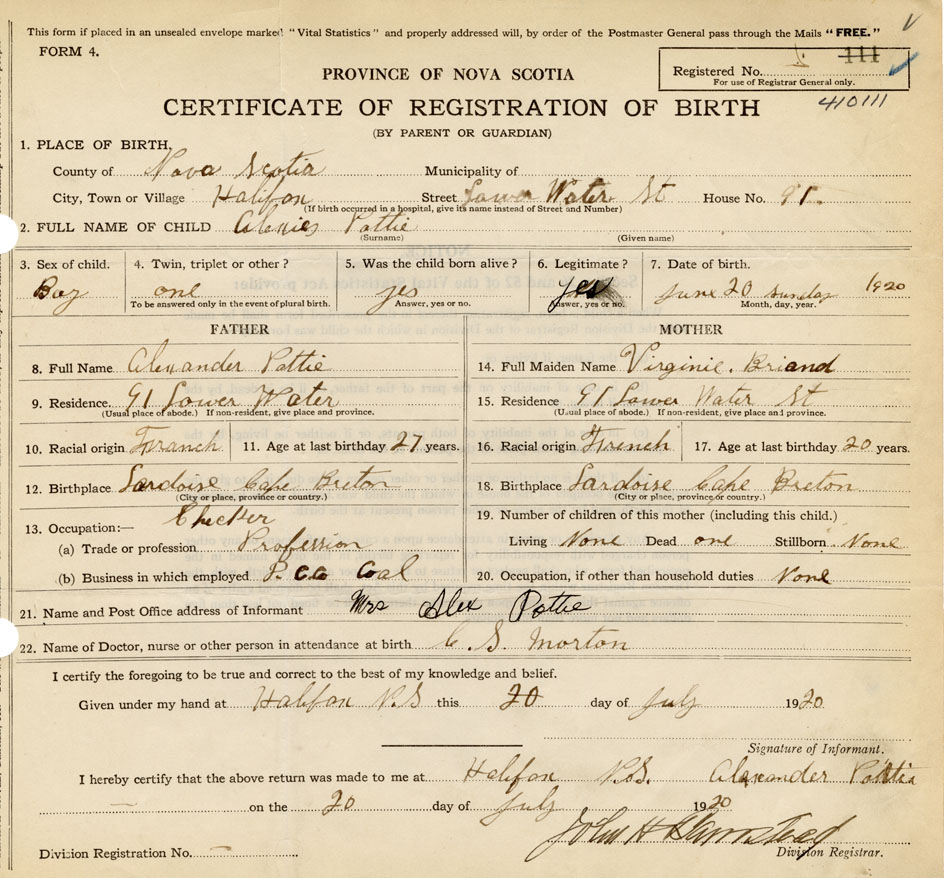 This form if placed in an unsealed envelope marked "Vital Statistics" and properly addressed will, by order of the Postmaster General pass through the Mails "FREE."
FORM 4.
111
Registered No.
For use of Registrar General only.
410111
PROVINCE OF NOVA SCOTIA
CERTIFICATE OF REGISTRATION OF BIRTH
(BY PARENT OR GUARDIAN)
1. PLACE OF BIRTH,
County of Nova Scotia Municipality of
City, Town or Village Halifax Street Lower Water St House No. 91.
(If birth occurred in a hospital, give its name instead of Street and Number)
2. FULL NAME OF CHILD Alexies Pattie
(Surname) (Given name)
3. Sex of child. 4. Twin, triplet or other? 5. Was the child born alive? 6. Legitimate? 7. Date of birth.
Boy one yes yes June 20 Sunday 1920
To be answered only in the event of plural birth. Answer, yes or no. Answer, yes or no. Month, day, year.
FATHER MOTHER
8. Full Name Alexander Pattie 14. Full Maiden Name Virginie. Briand
9. Residence. 91 Lower Water 15. Residence 91 Lower Water St
(Usual place of abode.) If non-resident, give place and province. (Usual place of abode.) If non-resident, give place and province.
10. Racial origin Franch 11. Age at last birthday 27 years. 16. Racial origin French 17. Age at last birthday 20 years.
12. Birthplace Lardoise Cape Breton 18. Birthplace Lardoise Cape Breton
(City or place, province or country.) (City or place, province or country.)
13. Occupation:— Checker 19. Number of children of this mother (including this child.)
(a) Trade or profession Profession Living None Dead one Stillborn None
(b) Business in which employed P. C.Co Coal 20. Occupation, if other than household duties None
21. Name and Post Office address of Informant Mrs Alex Pattie
22. Name of Doctor, nurse or other person in attendance at birth C. S. Morton
I certify the foregoing to be true and correct to the best of my knowledge and belief.
Given under my hand at Halifax N.S this 20 day of July 1920
Signature of Informant.
I hereby certify that the above return was made to me at Halifax N.S. Alexander Pattie
on the 20 day of July 1920
John H
Division Registration No. Division Registrar.